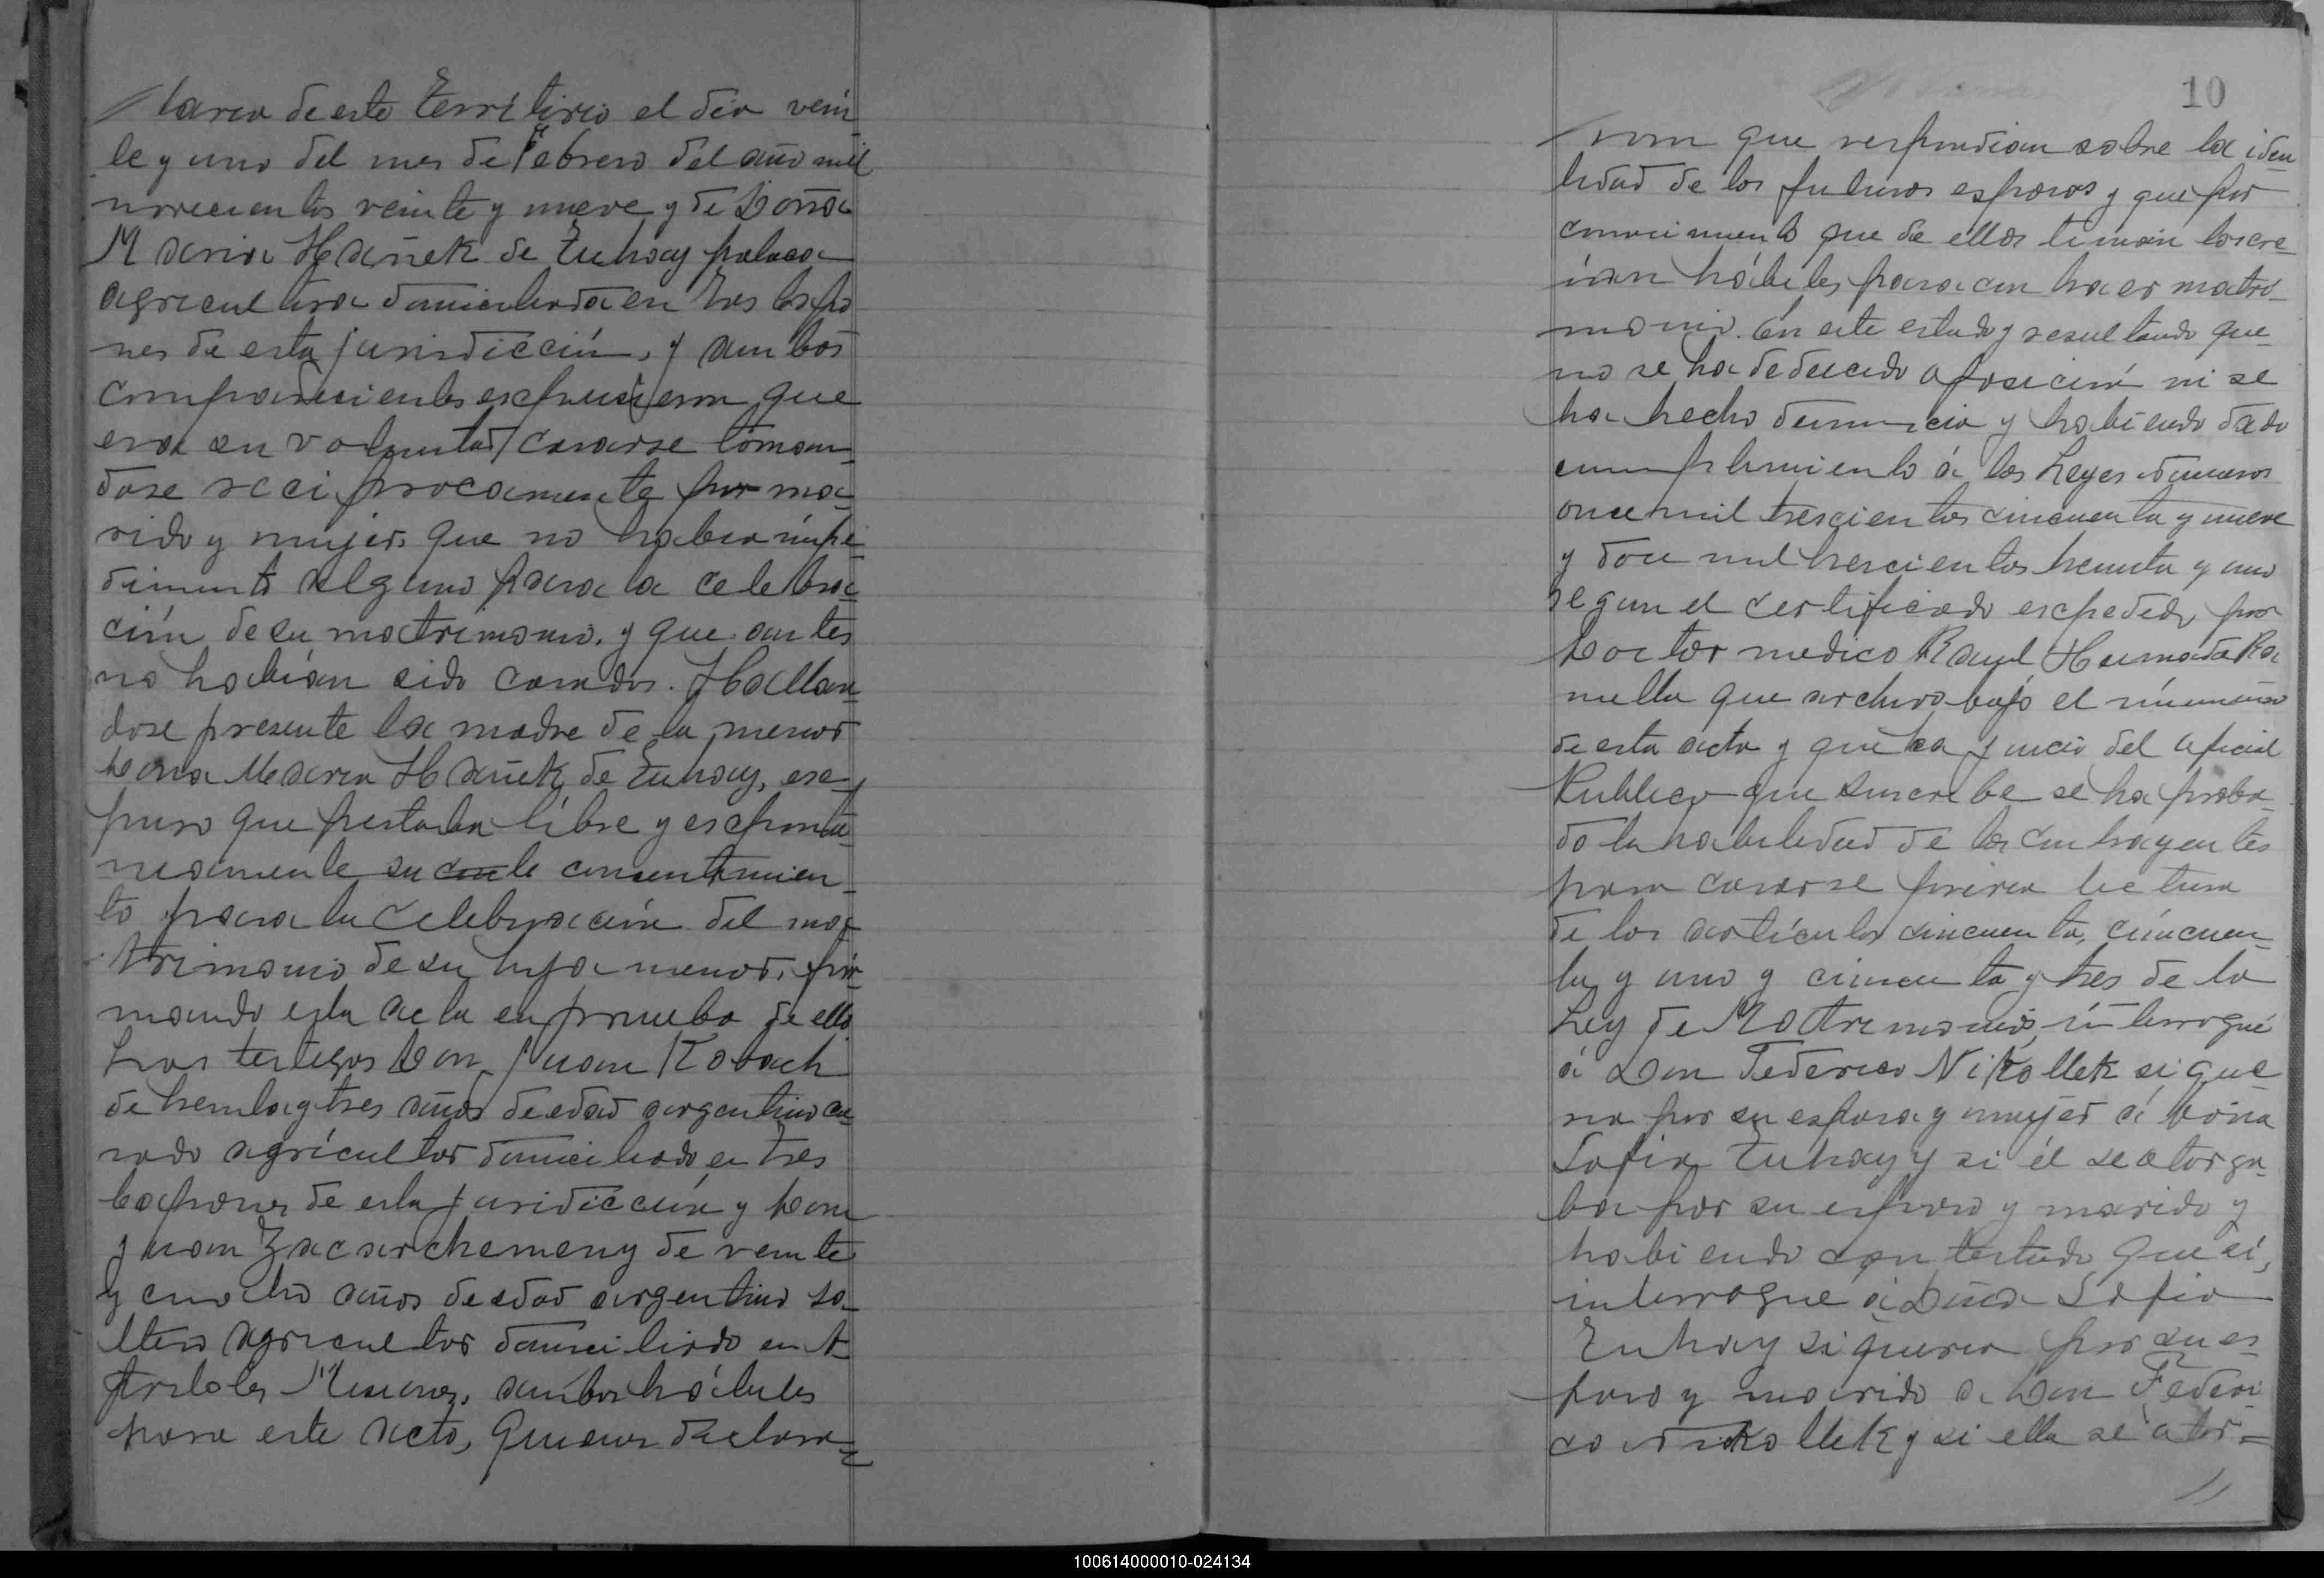 laria de este territorio el dia vein
te y uno del mes de Febrero del año mil
novecientos veinte y nueve y de Doña
Maria Hañek de Tuhay polaca
agricultora domiciliada en Tres Capo
nes de esta jurisdicción, y ambos
comparecientes expusieron que
era su voluntad casarse toman
dose reciprocamente por ma
rido y mujer. Que no habia impe
dimento alguno para la celebra
ción de su matrimonio. y que antes
no habían sido casados. Hallan
dose presente la madre de la menor
Dona Maria Hañek de Tuhay, es
puso que prestaba libre y esponta
neamente su consentimien
to para la celebración del ma
trimonio de su hija menor, fir
mando esta acta en prueba de ello
Los testigos Don Juan Kobach
de treinta y tres años de edad argentino ca
sado agricultor domiciliado en tres
Capones de esta juridicción y Don
Juan Zacarchemeny de veinte
y cuatro años de edad argentino so
ltero agricultor domiciliado en A
postoles Misiones, ambos hábiles
para este acto, Quienes declara
10
ron que respondian sobre la iden
tidad de los futuros esposos y que por
conocimiento que de ellos tenian los cre
ían hábiles para contraer matri
monio. En este estado y resultando que
no se ha deducido oposición ni se
ha hecho denuncia y habiendo dado
cumplimiento á las Leyes números
once mil trescientos cincuenta y nueve
y doce mil trescientos treinta y uno
segun el certificado espedido por
Doctor medico Raul Humada Ra
mella que archivo bajo el número
de esta acta y que a juicio del oficial
Publico que suscribe se ha proba
do la habilidad de los contrayentes
para casarse previa lectura
de los artículos cincuenta, cincuen
ta y uno y cincuenta y tres de la
Ley de Matrimonio, interrogué
á Don Federico Nikollek si que
ria por su esposa y mujer á Doña
Sofia Tuhay y si él se otorga
ba por su esposo y marido y
habiendo contestado que sí,
interrogue á Doña Sofia
Tuhay si queria por su es
poso y marido a Don Federi
co Nikollek y si ella se otor=
100614000010-024134